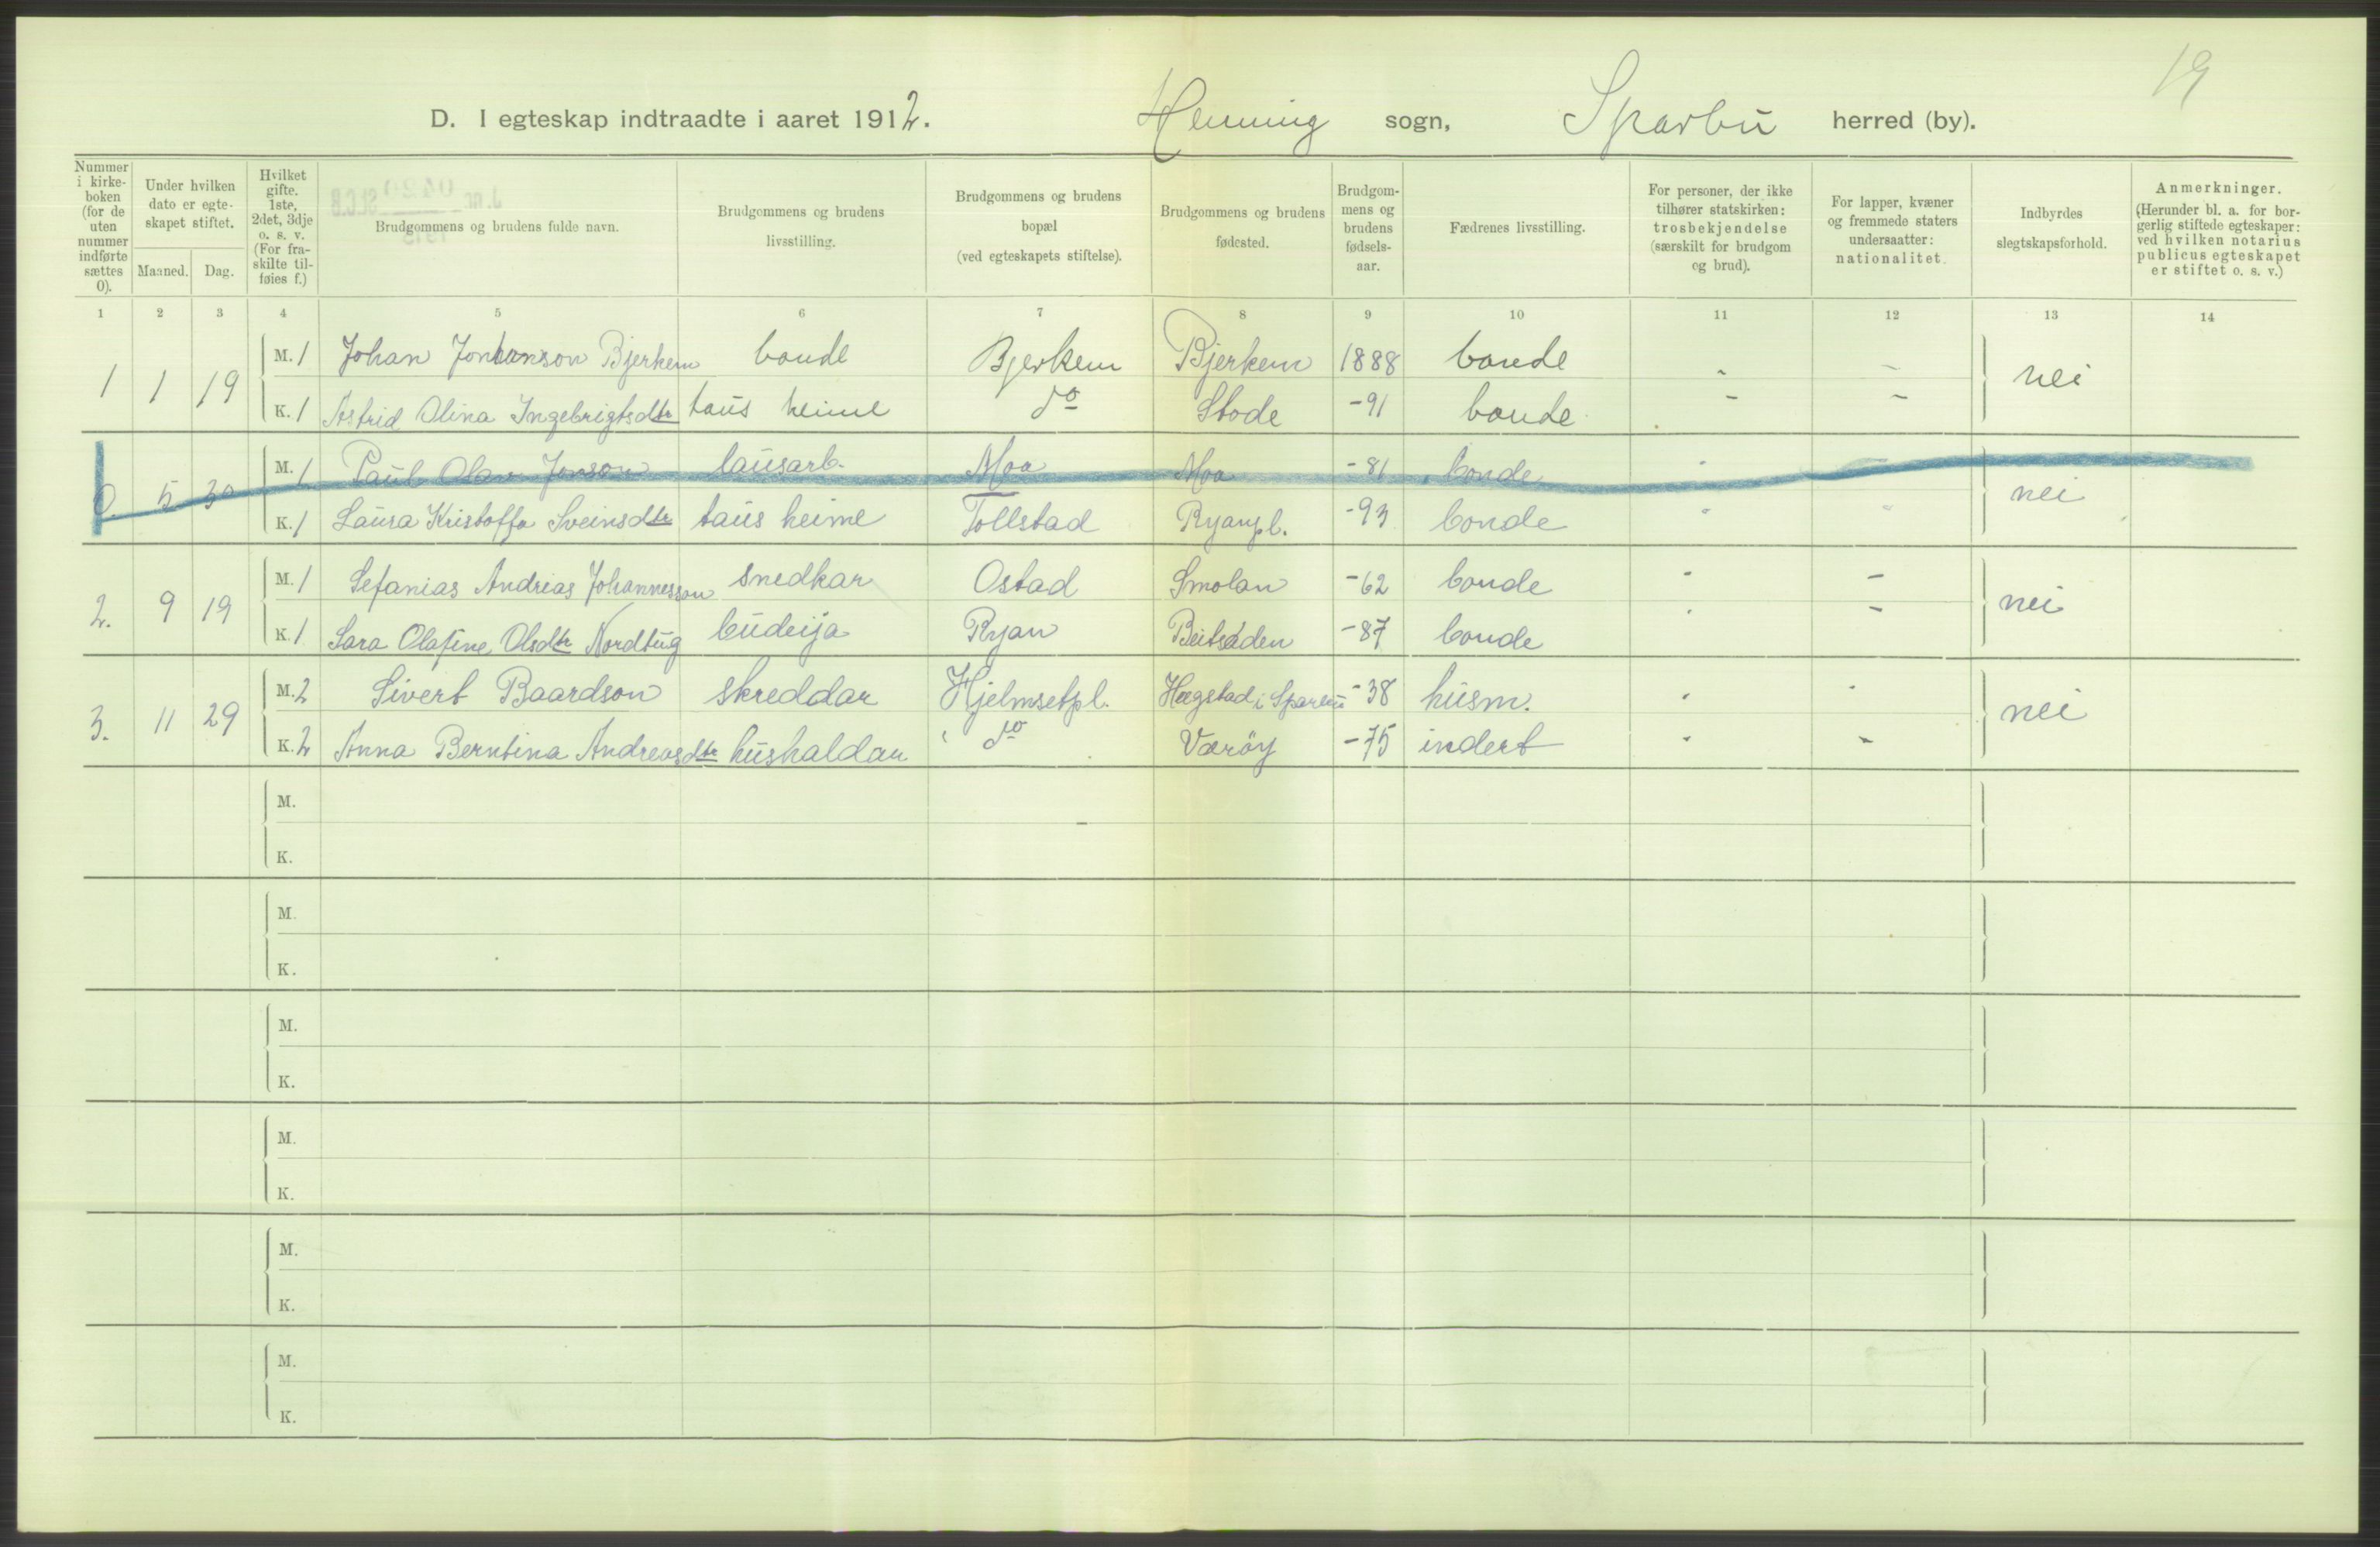 19
D. I egteskap indtraadte i aaret 1912. Henning sogn, Sparbu herred (by).
Nummer i kirke-boken (for de uten nummer indførte sættes 0).
Under hvilken dato er egte-skapet stiftet.
Maaned. Dag.
Hvilket gifte. 1ste, 2det, 3dje o. s. v. (For fra-skilte til-føies f.)
Brudgommens og brudens fulde navn.
Brudgommens og brudens livsstilling.
Brudgommens og brudens bopæl (ved egteskapets stiftelse).
Brudgommens og brudens fødested.
Brudgom-mens og brudens fødsels-aar.
Fædrenes livsstilling.
For personer, der ikke tilhører statskirken: trosbekjendelse (særskilt for brudgom og brud).
For lapper, kvæner og fremmede staters undersaatter: nationalitet.
Indbyrdes slegtskapsforhold.
Anmerkninger. (Herunder bl. a. for bor-gerlig stiftede egteskaper: ved hvilken notarius publicus egteskapet er stiftet o. s. v.)
1 2 3 4 5 6 7 8 9 10 11 12 13 14
1 1 19 M. 1 Johan Bjerkem bonde Bjerkem Bjerkem 1888 bonde - - nei
K. 1 Astrid Olina Ingebrigtsdtr taus heime do Stode -91 bonde - -
0 5 30 M. 1 Paul Olav Jonson lausarb. Moa Moa -81 bonde - - nei
K. 1 Laura Kristoffa Sveinsdtr taus heime Tollstad Ryanpl. -93 bonde
2. 9 19 M. 1 Sefanias Andrias Johannesson snedkar Ostad Smolan -62 bonde - - nei
K. 1 Sara Olafine Olsdtr Nordtug budeija Ryan -87 bonde - -
3. 11 29 M. 2 Sivert Baardson skreddar Hjelmsetpl. Hægstad i Sparbu -38 husm. - - nei
K. 2 Anna Berntina Andreasdtr hushaldar do Værøy -75 inderst - -
M.
K.
M.
K.
M.
K.
M.
K.
M.
K.
M.
K.